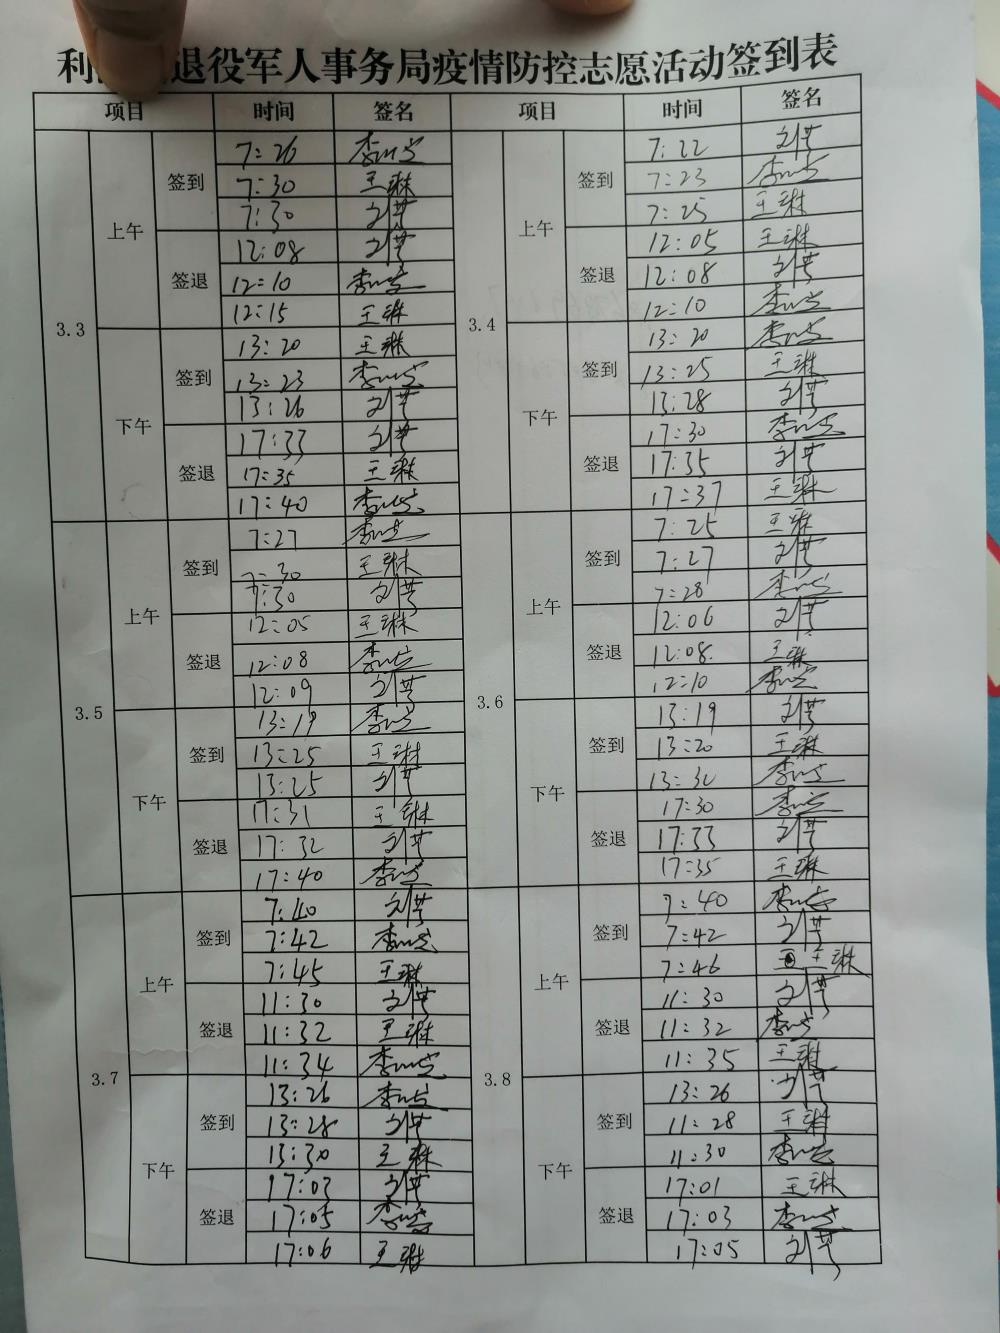 利 退役军人事务局疫情防控志愿活动签到表
项目 时间 签名 项目 时间 签名
3.3 上午 签到 7:26 李
7:30 王琳
7:30 刘
签退 12:08 刘
12:10 李
12:15 王琳
下午 签到 13:20 王琳
13:23 李
13:26 刘
签退 17:33 刘
17:35 王琳
17:40 李
3.4 上午 签到 7:22 刘
7:23 李
7:25 王琳
签退 12:05 王琳
12:08 刘
12:10 李
下午 签到 13:20 李
13:25 王琳
13:28 刘
签退 17:30 李
17:35 刘
17:37 王琳
3.5 上午 签到 7:27 李
7:30 王琳
7:30 刘
签退 12:05 王琳
12:08 李
12:09 刘
下午 签到 13:19 李
13:25 王琳
13:25 刘
签退 17:31 王琳
17:32 刘
17:40 李
3.6 上午 签到 7:25 王琳
7:27 刘
7:28 李
签退 12:06 刘
12:08 王琳
12:10 李
下午 签到 13:19 刘
13:20 王琳
13:32 李
签退 17:30 李
17:33 刘
17:35 王琳
3.7 上午 签到 7:40 刘
7:42 李
7:45 王琳
签退 11:30 刘
11:32 王琳
11:34 李
下午 签到 13:26 李
13:28 刘
13:30 王琳
签退 17:03 刘
17:05 李
17:06 王琳
3.8 上午 签到 7:40 李
7:42 刘
7:46 王琳
签退 11:30 刘
11:32 李
11:35 王琳
下午 签到 13:26 刘
11:28 王琳
11:30 李
签退 17:01 王琳
17:03 李
17:05 刘